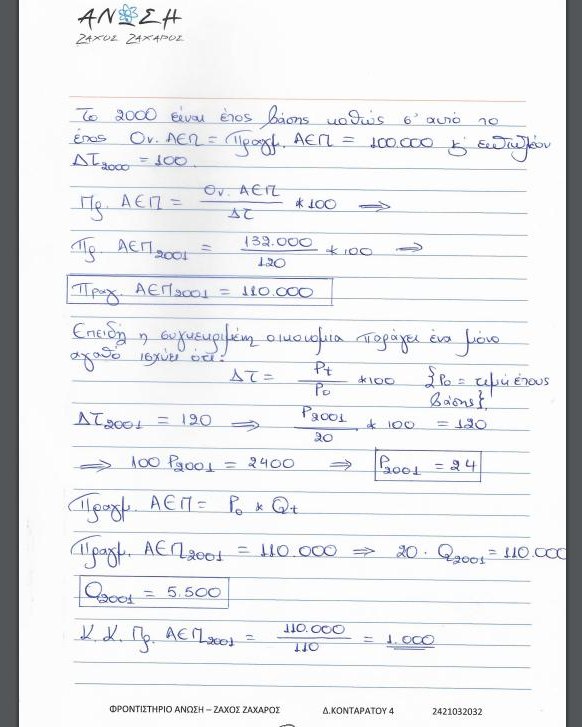 ΑΝΩΣΗ
ΖΑΧΟΣ ΖΑΧΑΡΟΣ
Το 2000 είναι έτος βάσης καθώς σ' αυτό το
έτος Ον. ΑΕΠ = Πραγμ. ΑΕΠ = 100.000 κ' επιπλέον
ΔΤ2000 = 100.
Πρ. ΑΕΠ = Ον. ΑΕΠ / ΔΤ * 100 ⟹
Πρ. ΑΕΠ2001 = 132.000 / 120 * 100 ⟹
Πραγ. ΑΕΠ2001 = 110.000
Επειδή η συγκεκριμένη οικονομια παράγει ένα μόνο
αγαθό ισχύει ότι:
ΔΤ = Pt / Po * 100 {Po = τιμή έτους
βάσης}.
ΔΤ2001 = 120 ⟹ P2001 / 20 * 100 = 120
⟹ 100 P2001 = 2400 ⟹ P2001 = 24
Πραγμ. ΑΕΠ = Po * Qt
Πραγμ. ΑΕΠ2001 = 110.000 ⟹ 20 · Q2001 = 110.000
Q2001 = 5.500
Κ.Κ. Πρ. ΑΕΠ2001 = 110.000 / 110 = 1.000
ΦΡΟΝΤΙΣΤΗΡΙΟ ΑΝΩΣΗ – ΖΑΧΟΣ ΖΑΧΑΡΟΣ Δ.ΚΟΝΤΑΡΑΤΟΥ 4 2421032032